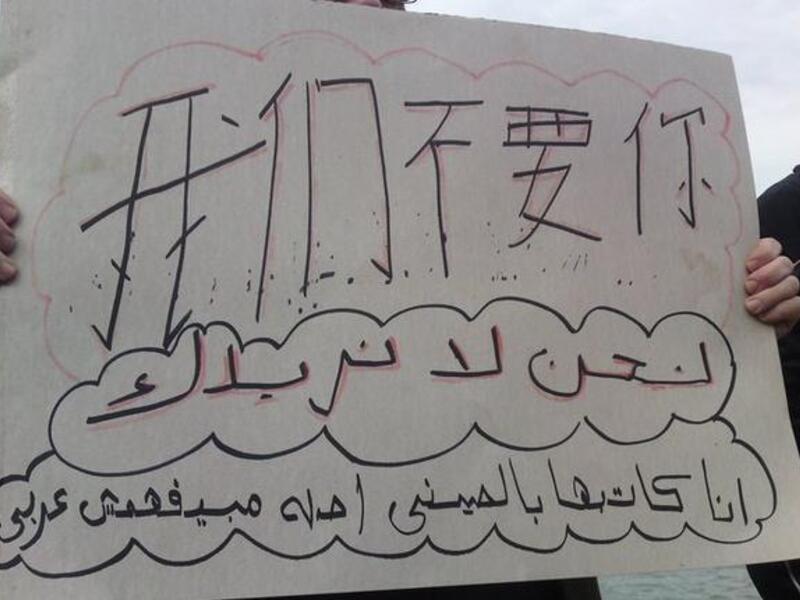 我们不要你
نحن لا نريدك
انا كاتبها بالصينى اصله مبيفهمش عربى